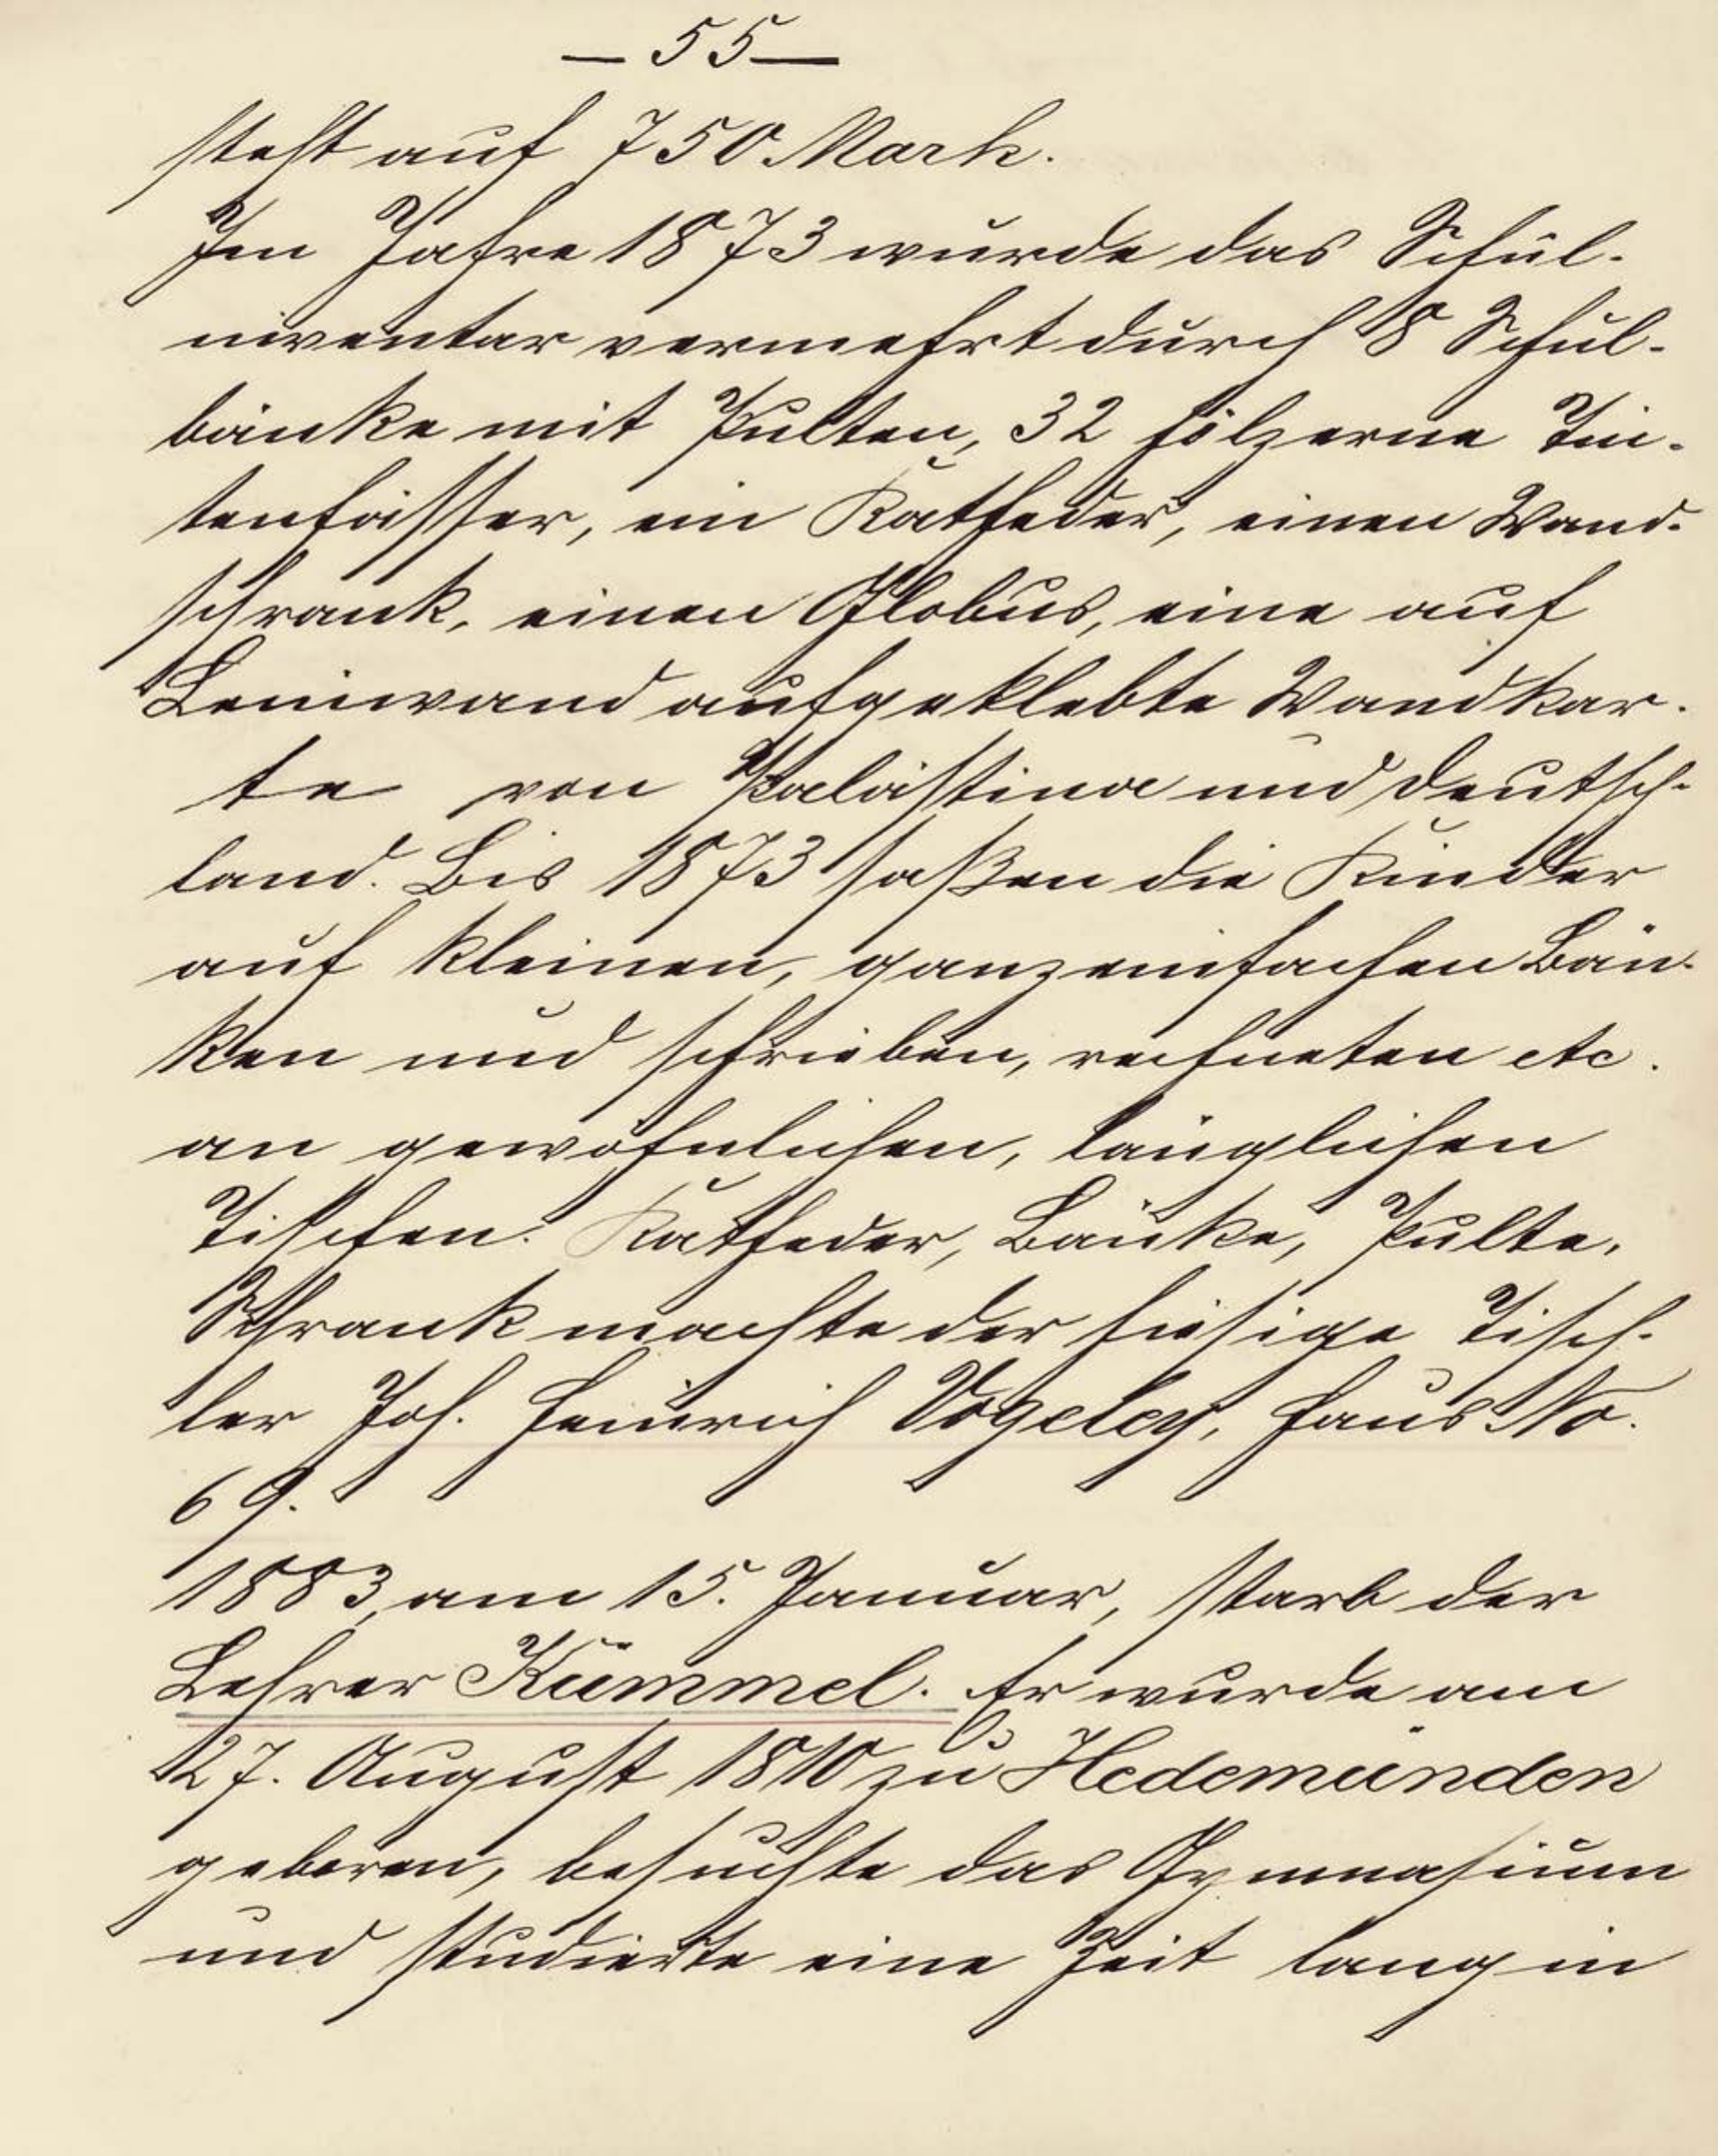 — 55 —
steht auf 750 Mark.
Im Jahre 1873 wurde das Schul-
inventar vermehrt durch 8 Schul-
bänke mit Pulten, 32 hölzerne Tin-
tenfässer, ein Katheder, einen Wand-
schrank, einen Globus, eine auf
Leinwand aufgeklebte Wandkar-
te von Palästina und Deutsch-
land. Bis 1873 saßen die Kinder
auf kleinen, ganz einfachen Bän-
ken und schrieben, rechneten etc.
an gewöhnlichen, länglichen
Tischen. Katheder, Bänke, Pulte,
Schrank machte der hiesige Tisch-
ler Joh. Heinrich Vogeley, Haus No.
69.
1883, am 15. Januar, starb der
Lehrer Kümmel. Er wurde am
27. August 1810 zu Hedemünden
geboren, besuchte das Gymnasium
und studierte eine Zeit lang in